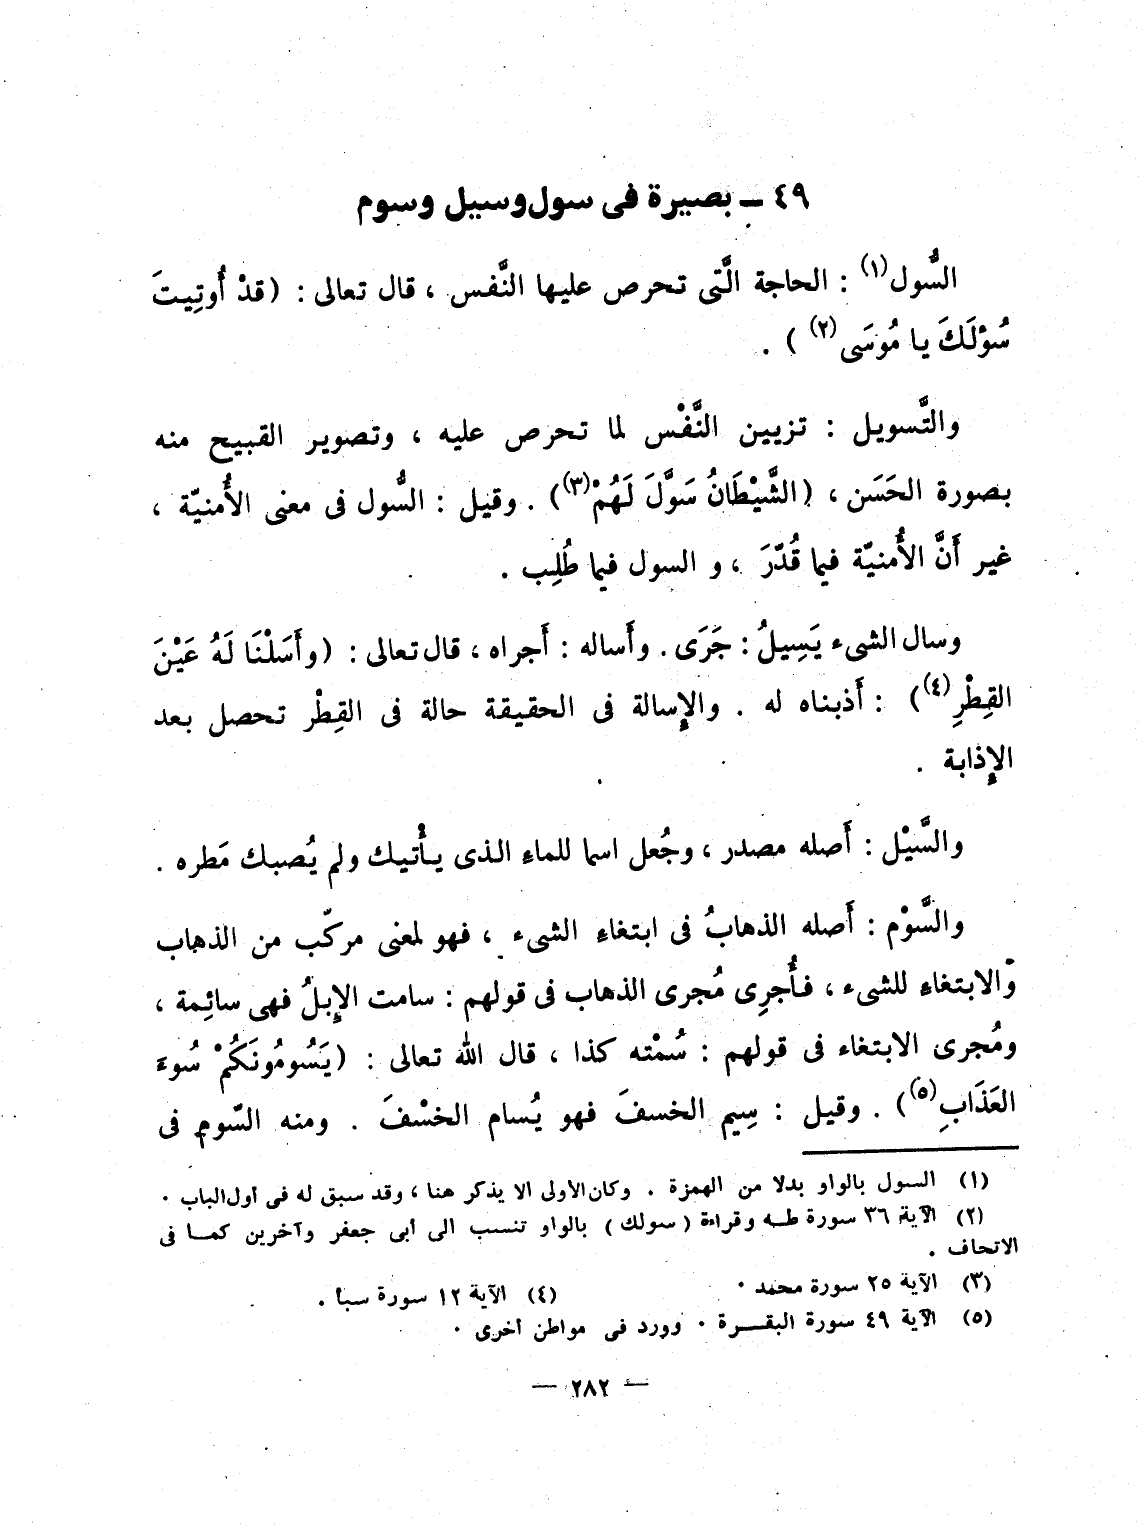 ٤٩ – بصيرة فى سول وسيل وسوم
السُّول(١) : الحاجة الَّتى تحرص عليها النَّفس ، قال تعالى : (قدْ أُوتِيتَ
سُؤْلَكَ يا مُوسَى(٢) ) .
والتَّسويل : تزيين النَّفْس لما تحرص عليه ، وتصوير القبيح منه
بصورة الحَسَن ، (الشَّيْطَانُ سَوَّلَ لَهُمْ(٣)) . وقيل : السُّول فى معنى الأُمنيّة ،
غير أَنَّ الأُمنيّة فيما قُدّرَ ، و السول فيما طُلِب .
وسال الشىء يَسِيلُ : جَرَى . وأَساله : أَجراه ، قال تعالى : (وأَسَلْنَا لَهُ عَيْنَ
القِطْرِ(٤)) : أَذبناه له . والإِسالة فى الحقيقة حالة فى القِطْر تحصل بعد
الإِذابة .
والسَّيْل : أَصله مصدر ، وجُعل اسما للماءِ الذى يأْتيك ولم يُصبك مَطره .
والسَّوْم : أَصله الذهابُ فى ابتغاءِ الشىء ، فهو لمعنى مركّب من الذهاب
والابتغاءِ للشىء ، فأُجرِى مُجرى الذهاب فى قولهم : سامت الإِبلُ فهى سائِمة ،
ومُجرى الابتغاء فى قولهم : سُمْته كذا ، قال الله تعالى : (يَسُومُونَكُمْ سُوءَ
العَذَابِ(٥)) . وقيل : سِيم الخسفَ فهو يُسام الخسْفَ . ومنه السّوم فى
(١) السول بالواو بدلا من الهمزة . وكان الأولى الا يذكر هنا ، وقد سبق له فى أول الباب .
(٢) الآية ٣٦ سورة طه وقراءة (سولك) بالواو تنسب الى أبى جعفر وآخرين كما فى
الاتحاف .
(٣) الآية ٢٥ سورة محمد . (٤) الآية ١٢ سورة سبأ .
(٥) الآية ٤٩ سورة البقرة . وورد فى مواطن أخرى .
— ٢٨٢ —